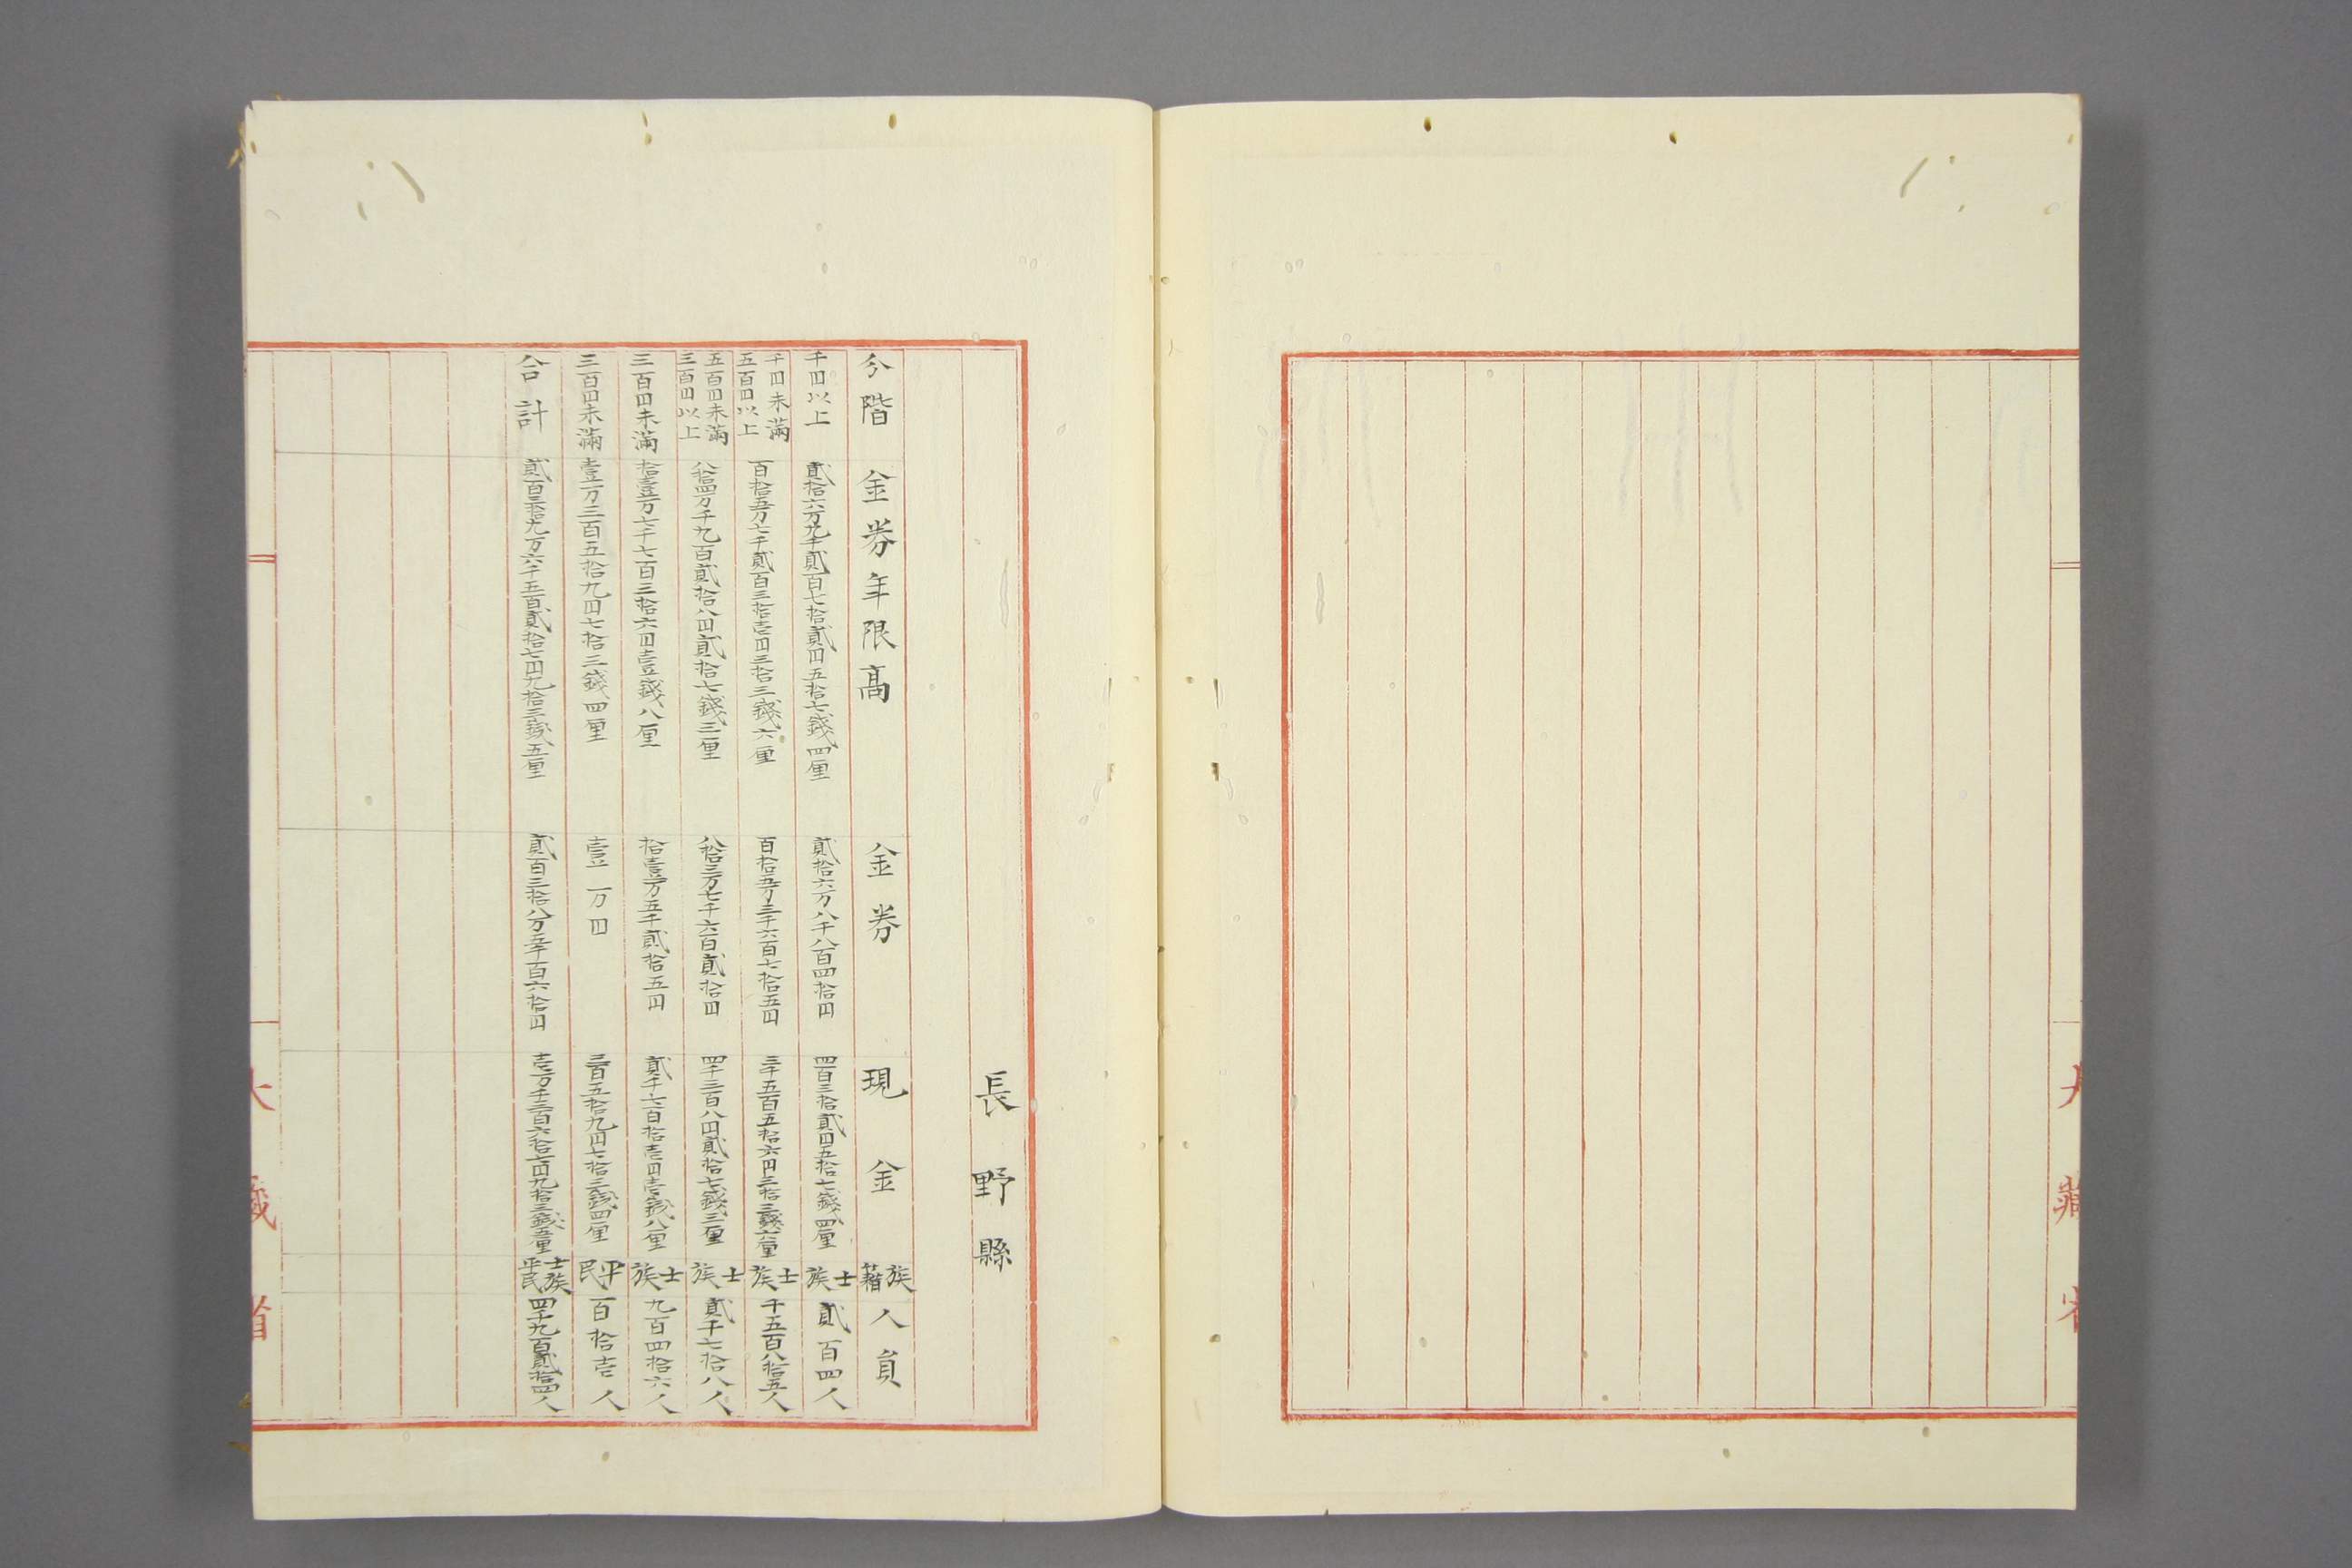 大藏省
長野縣
分階 金券年限高 金券 現金 族籍 人員
千円以上 貳拾六万九千貳百七拾貳円五拾七錢四厘 貳拾六万八千八百四拾円 四百三拾貳円五拾七錢四厘 士族 貳百四人
千円未滿五百円以上 百拾五万七千貳百三拾壱円三拾三錢六厘 百拾五万三千六百七拾五円 三千五百五拾六円三拾三錢六厘 士族 千五百八拾五人
五百円未滿三百円以上 八拾四万千九百貳拾八円貳拾七錢三厘 八拾三万七千六百貳拾円 四千三百八円貳拾七錢三厘 士族 貳千七拾八人
三百円未滿 拾壹万七千七百三拾六円壹錢八厘 拾壹万五千貳拾五円 貳千七百拾壱円壱錢八厘 士族 九百四拾六人
三百円未滿 壹万三百五拾九円七拾三錢四厘 壹万円 三百五拾九円七拾三錢四厘 平民 百拾壱人
合計 貳百三拾九万六千五百貳拾七円九拾三錢五厘 貳百三拾八万五千百六拾円 壱万千三百六拾七円九拾三錢五厘 士族平民 四千九百貳拾四人
大藏省